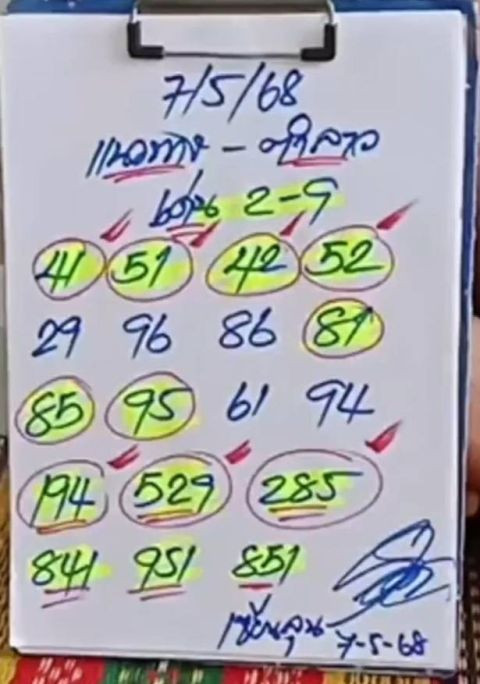 7/5/68
แนวทาง - ฮานอย ลาว
เด่น 2-9
41 51 42 52
29 96 86 81
85 95 61 94
194 529 285
841 951 851
เซียนลุน
7-5-68